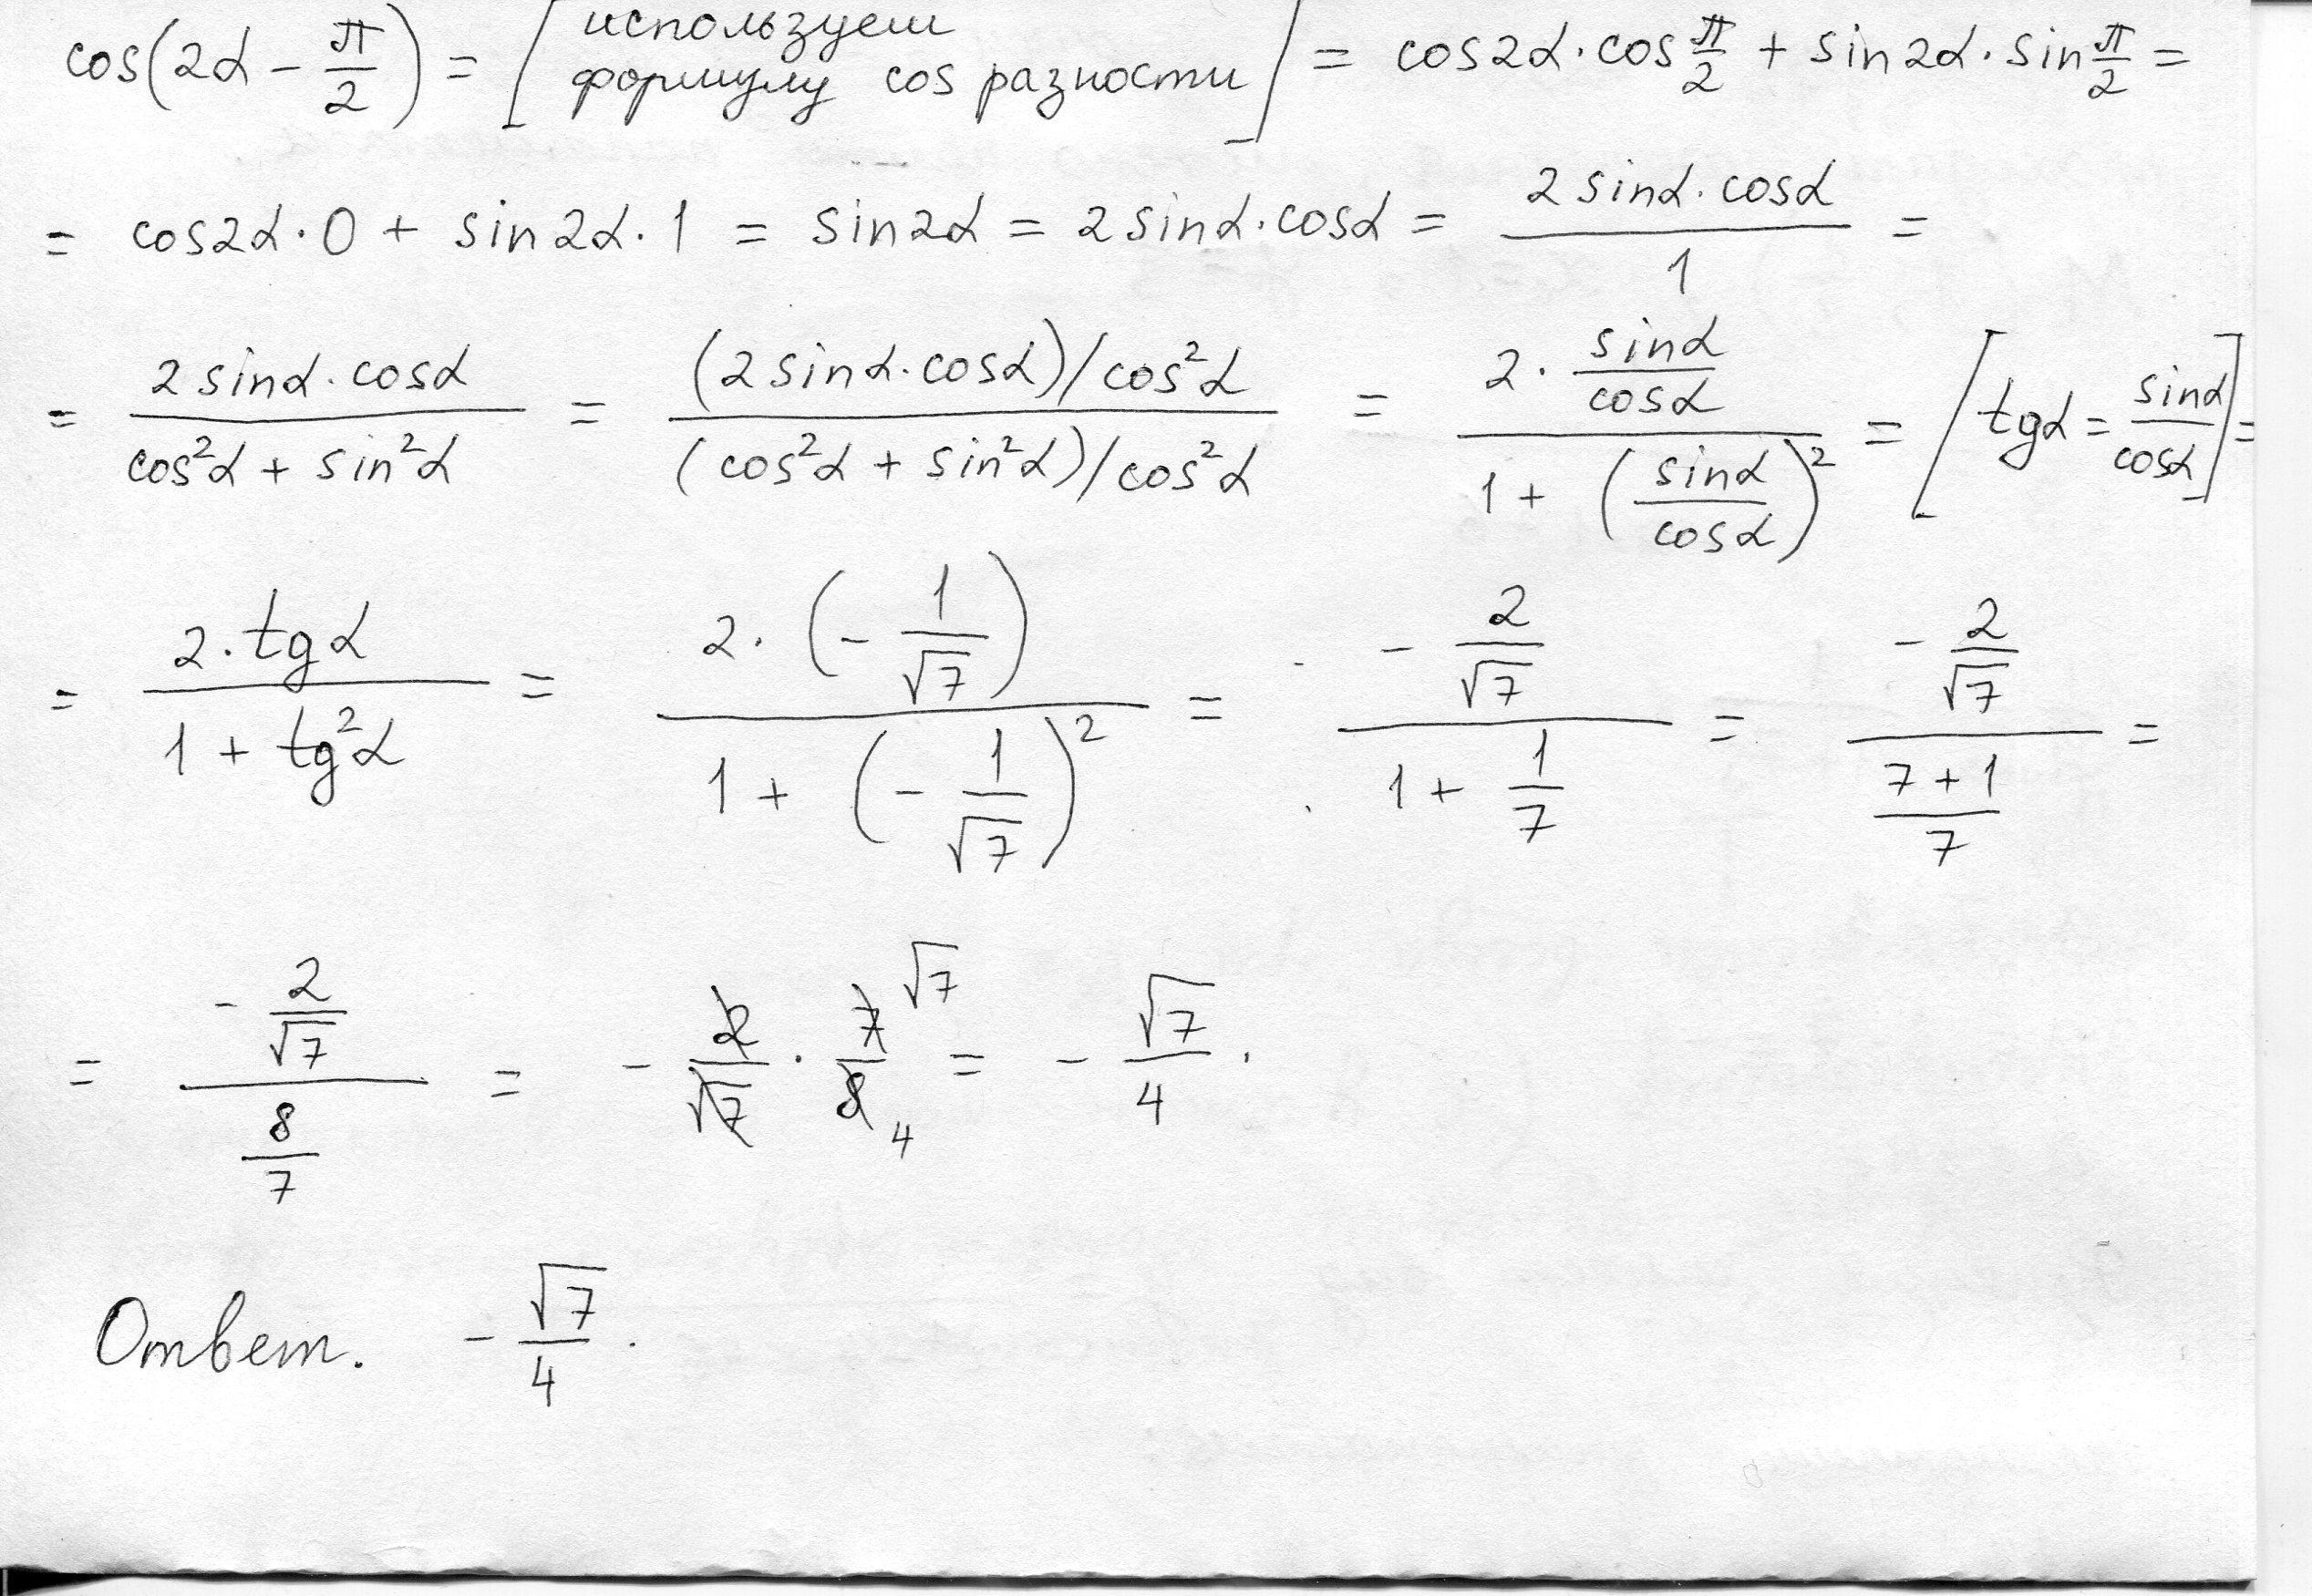 cos(2α - π/2) = [используем формулу cos разности] = cos2α · cos π/2 + sin2α · sin π/2 =
= cos2α · 0 + sin2α · 1 = sin2α = 2sinα · cosα = (2sinα · cosα)/1 =
= (2sinα · cosα)/(cos²α + sin²α) = ((2sinα · cosα)/cos²α)/((cos²α + sin²α)/cos²α) = (2 · sinα/cosα)/(1 + (sinα/cosα)²) = [tgα = sinα/cosα] =
= (2 · tgα)/(1 + tg²α) = (2 · (-1/√7))/(1 + (-1/√7)²) = (-2/√7)/(1 + 1/7) = (-2/√7)/((7+1)/7) =
= (-2/√7)/(8/7) = -2/√7 · 7/8 √7 4 = -√7/4.
Ответ. -√7/4.